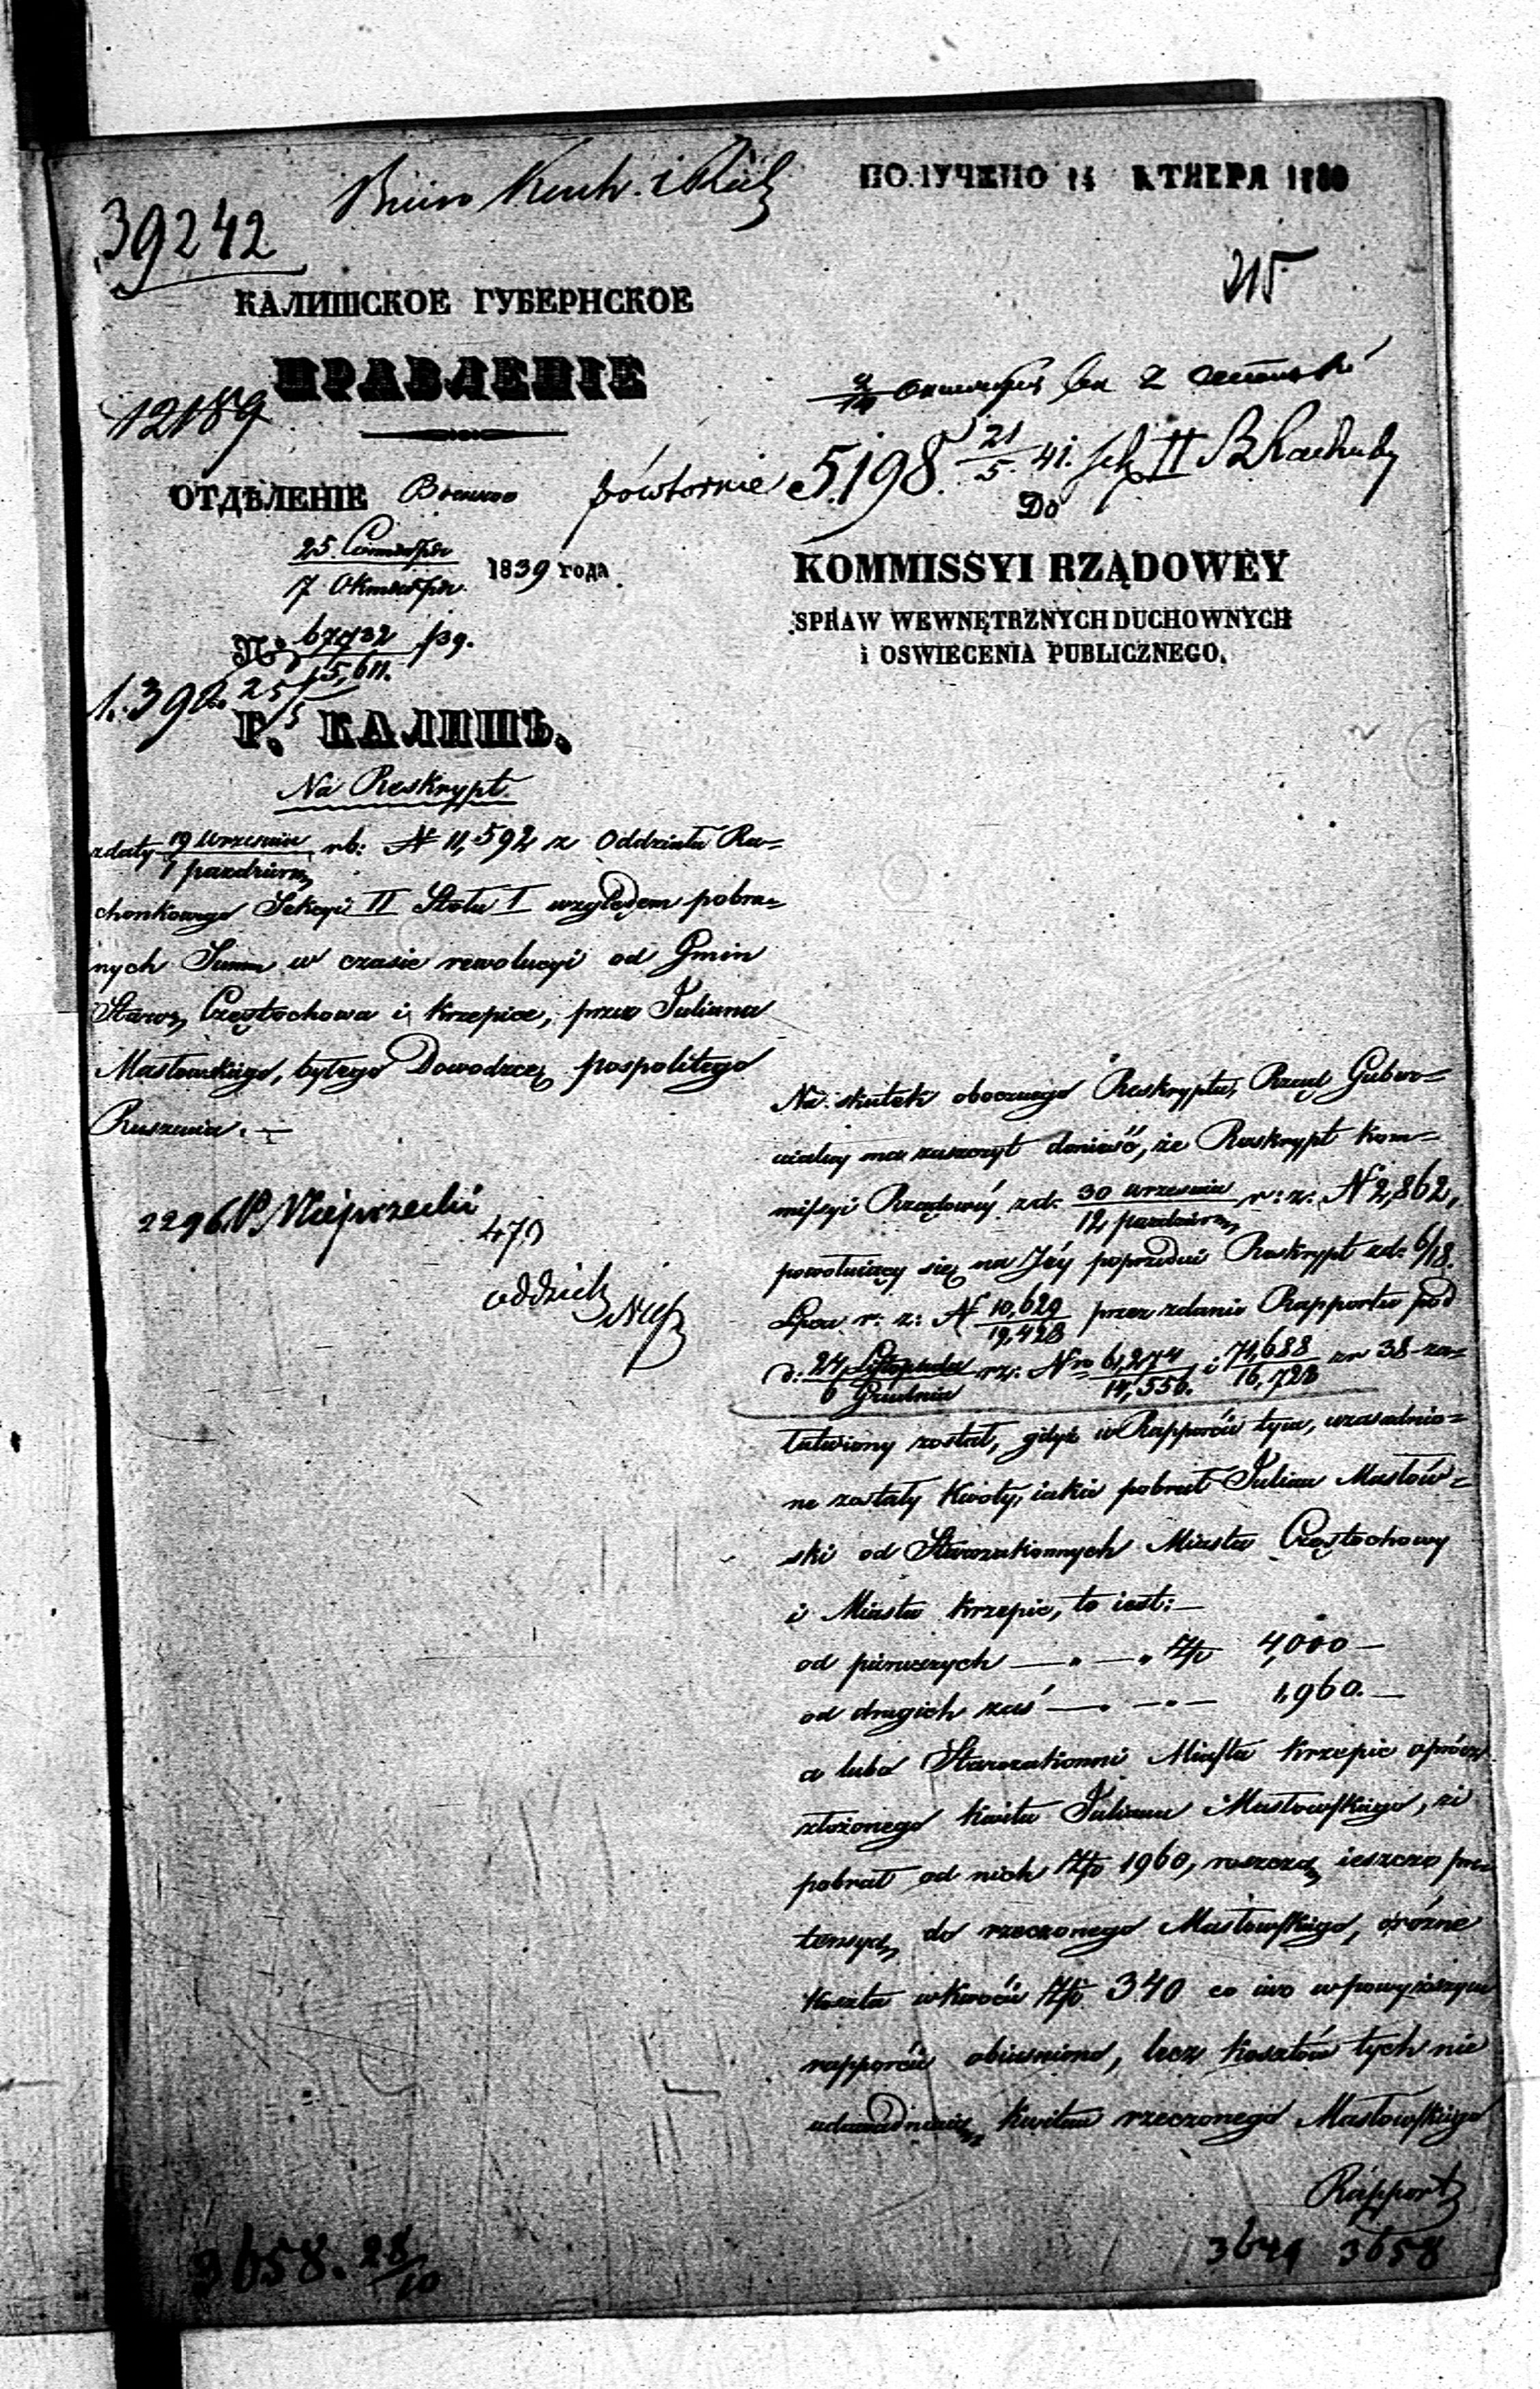 39242
ПОЛУЧЕНО 14 ОКТЯБРЯ 1839
215
КАЛИШСКОЕ ГУБЕРНСКОЕ
ПРАВЛЕНІЕ
12189
ОТДѢЛЕНІЕ
powtornie 5,198. 21/5. 41. II
Do
KOMMISSYI RZĄDOWEY
SPRAW WEWNĘTRZNYCH DUCHOWNYCH
i OSWIECENIA PUBLICZNEGO.
25. Сентября
7 Октября 1839 года.
№ 67732/15,611. /39.
Г. КАЛИШЪ.
Na Reskrypt.
z daty 19 Wrzesnia/1 pazdziern rb: N 11,592 z Oddziału Ra=
chonkowego Sekcyi II Stołu I względem pobra=
nych Summ w czasie rewolucyi od Gmin
Starоz Częstochowa i Krzepice, przez Juliana
Masłowskiego, byłego Dowodzcę pospolitego
Ruszenia. —
2296.
470
Na skutek obocznego Reskryptu, Rząd Guber=
nialny ma zaszczyt donieść, że Reskrypt Kom=
missyi Rządowéy z d. 30 Wrzesnia/12 pazdziern r: z: N 2,862,
powołuiący się na Jéy poprzedni Reskrypt z d: 6/18.
Lipca r: z: N 10,629/19,428 przez zdanie Rapportu pod
d: 24 Listopada/6 Grudnia r z: Nro 61,274/14,556. i 74,688/16,728 zr 38 za=
łatwiony został, gdyż w Rapporcie tym, uzasadnio=
ne zostały Kwoty, iakie pobrał Julian Masłow=
ski od Starozakonnych Miasta Częstochowy
i Miasta Krzepic, to iest: —
od pierwszych — „ — „ Złp 4,000 —
od drugich zaś — „ — „ — 1,960. —
a lubo Starozakonni Miasta Krzepic oprócz
złożonego Kwitu Juliana Masłowskiego, iż
pobrał od nich Złp 1960, roszczą ieszcze pre=
tensyą do rzeczonego Masłowskiego, o różne
Koszta w Kwocie Złp 340 co iuż w powyższym
rapporcie obiaśniono, lecz Kosztów tych nie
udowadniaią Kwitem rzeczonego Masłowskiego
Rapport
3658. 28/10
3649 3658